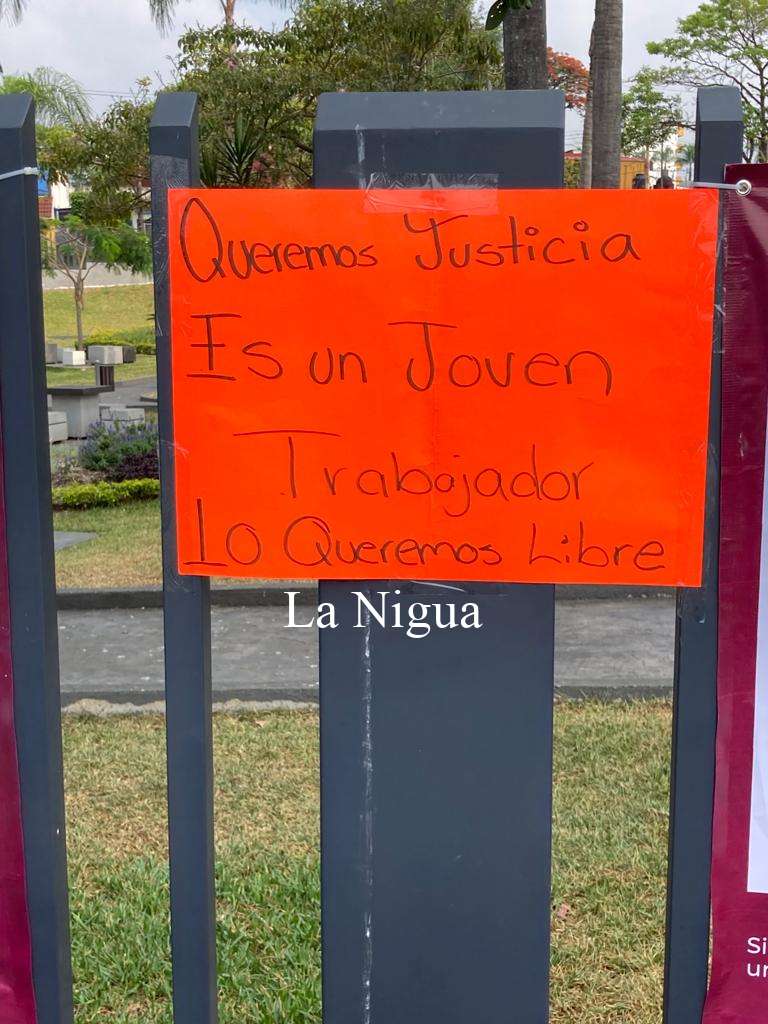 Queremos Justicia
Es un Joven
Trabajador
Lo Queremos Libre
La Nigua
Si
un